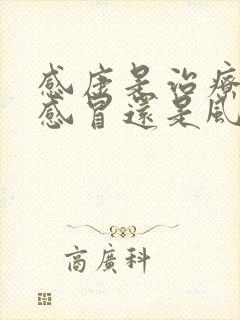 感康是治療
感冒還是風
商廣科